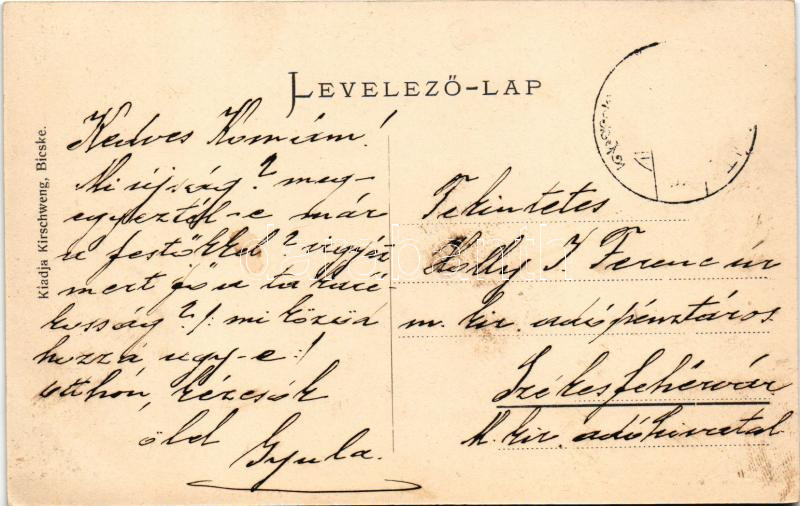 LEVELEZŐ-LAP
Kiadja Kirschweng, Bicske.
Kedves Komám!
Mi ujság? meg-
egyeztél-e már
a festőkkel?
mert fő a takaré-
kosság?/: mi közöm
hozzá ugy-e:/
otthon, kézcsók
ölel
Gyula.
Tekintetes
Ferenc úr
m. kir. adópénztáros
Székesfehérvár
M. kir. adóhivatal
darabanth